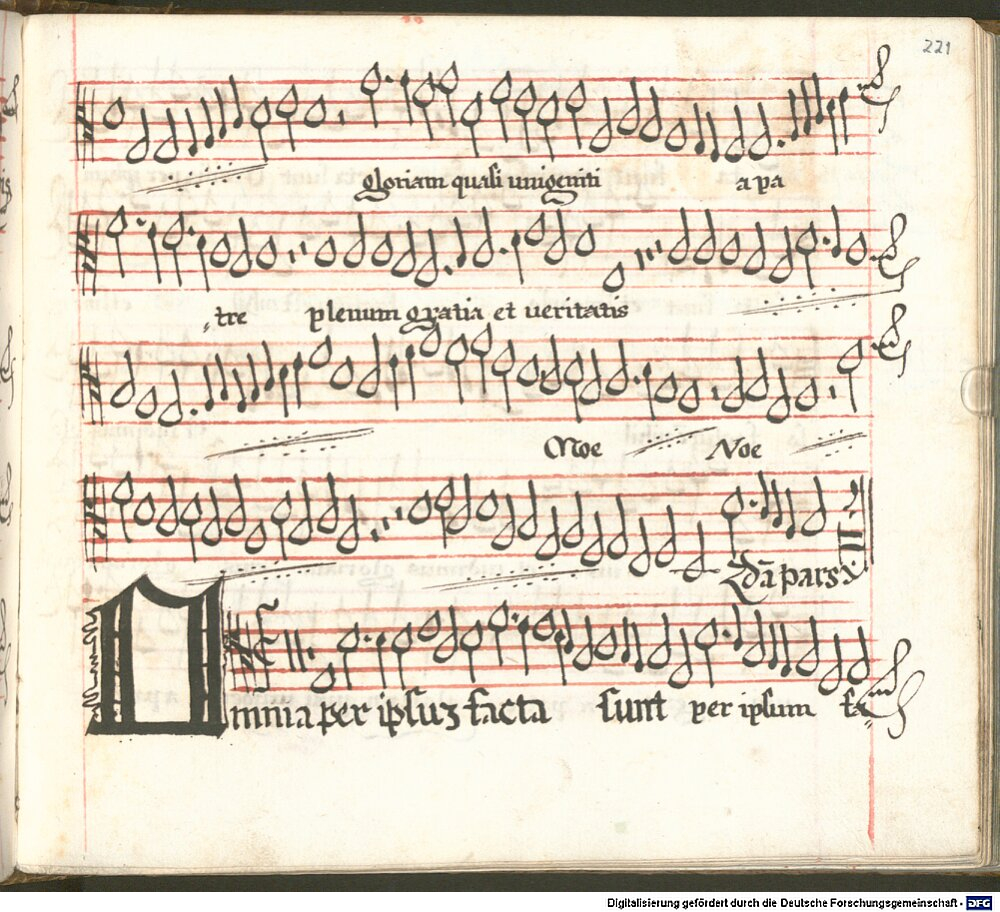 221
gloriam quasi unigeniti a pa
tre plenum gratia et veritatis
Noe Noe
2da pars
Omnia per ipsuz facta sunt per ipsum fa
Digitalisierung gefördert durch die Deutsche Forschungsgemeinschaft - DFG